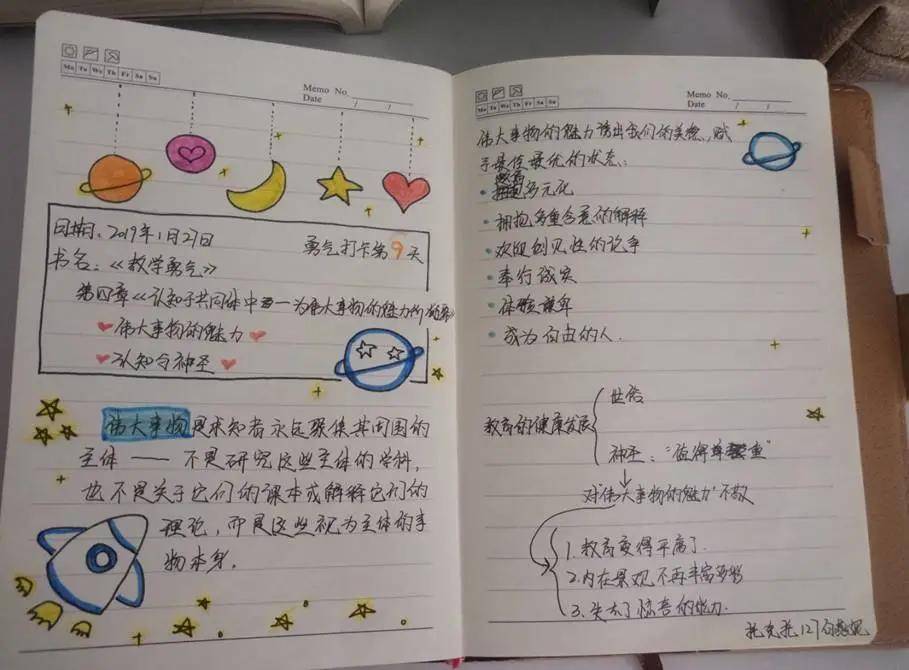 Mo Tu We Th Fr Sa Su
Memo No.
Date / /
日期：2019年1月27日
勇气打卡第9天
书名：《教学勇气》
第四章《认知于共同体中——为伟大事物的魅力所
伟大事物的魅力
认知与神圣
伟大事物是求知者永远聚集其周围的
主体——不是研究这些主体的学科，
也不是关于它们的课本或解释它们的
理论，而是这些视为主体的事
物本身。
Mo Tu We Th Fr Sa Su
Memo No.
Date / /
伟大事物的魅力诱出我们的美德，赋
予最佳最优的状态：
多元化
拥抱多重含意的解释
欢迎创见性的论争
奉行诚实
体验谦卑
成为自由的人.
教育的健康发展
世俗
神圣：“值得
对“伟大事物的魅力”不敬
1.教育变得平庸了.
2.内在景观不再丰富多彩
3.失去了惊奇的能力.